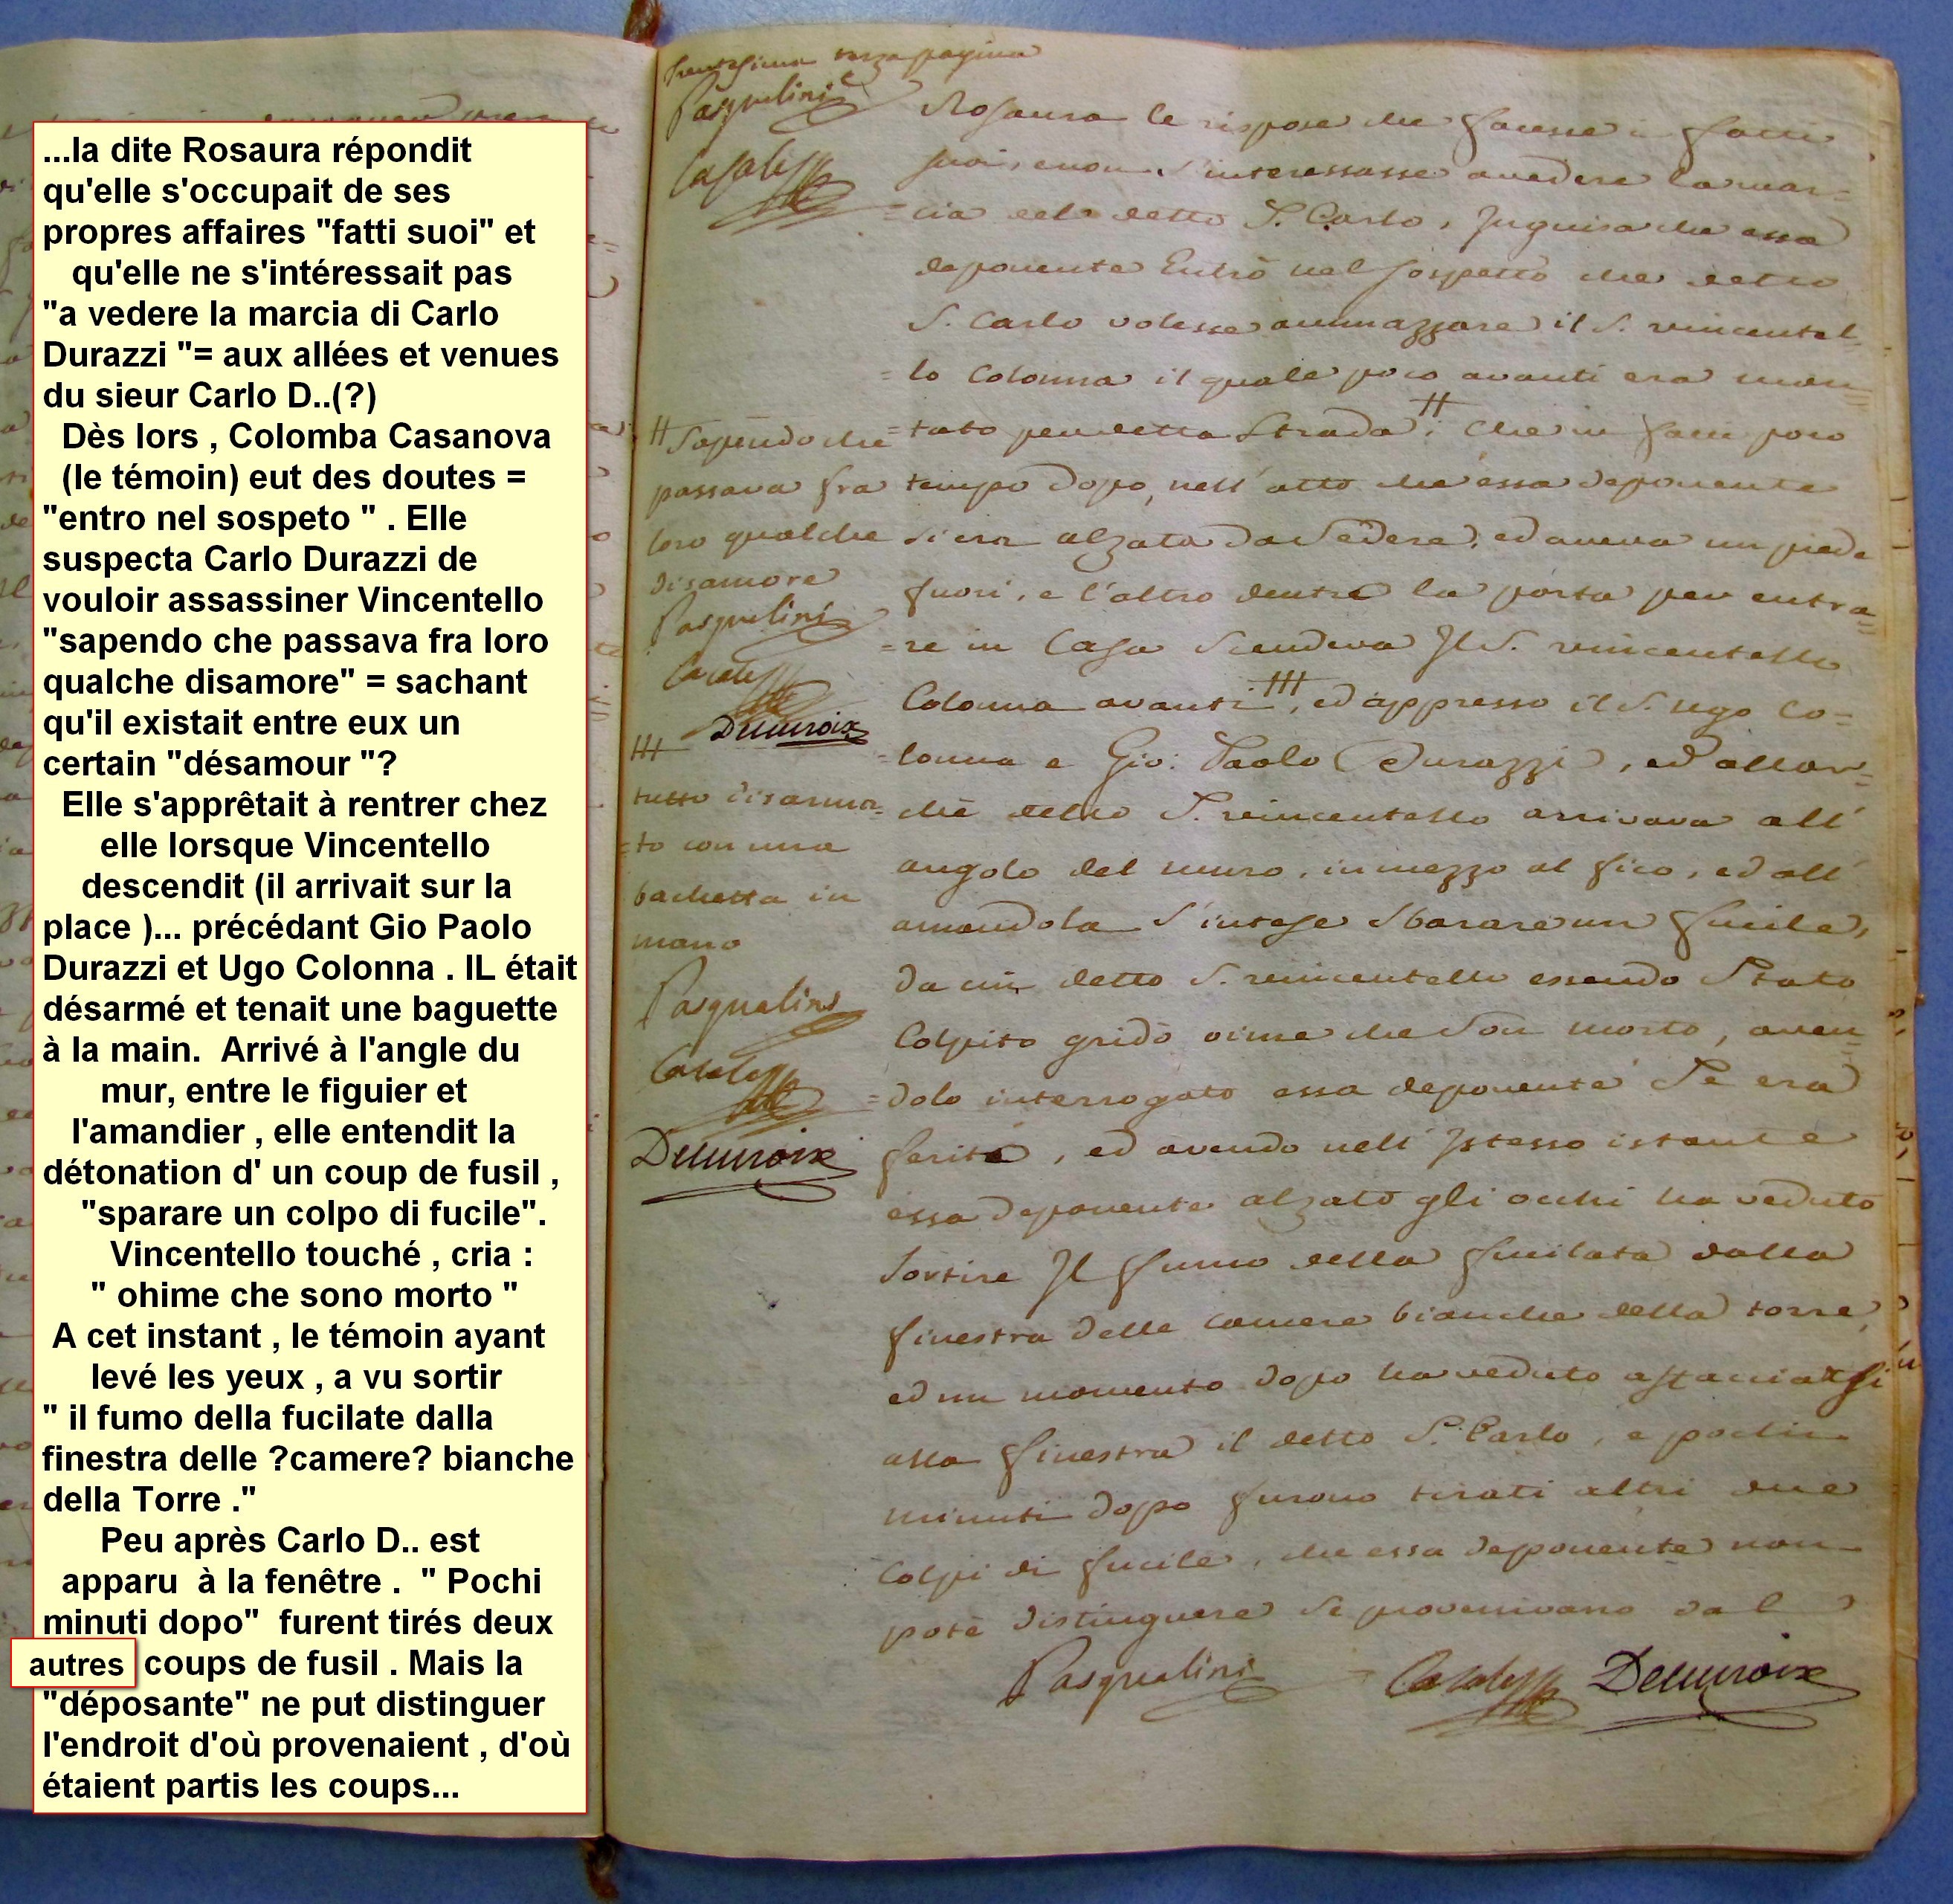 ...la dite Rosaura répondit
qu'elle s'occupait de ses
propres affaires "fatti suoi" et
qu'elle ne s'intéressait pas
"a vedere la marcia di Carlo
Durazzi "= aux allées et venues
du sieur Carlo D..(?)
Dès lors , Colomba Casanova
(le témoin) eut des doutes =
"entro nel sospeto " . Elle
suspecta Carlo Durazzi de
vouloir assassiner Vincentello
"sapendo che passava fra loro
qualche disamore" = sachant
qu'il existait entre eux un
certain "désamour "?
Elle s'apprêtait à rentrer chez
elle lorsque Vincentello
descendit (il arrivait sur la
place )... précédant Gio Paolo
Durazzi et Ugo Colonna . IL était
désarmé et tenait une baguette
à la main.  Arrivé à l'angle du
mur, entre le figuier et
l'amandier , elle entendit la
détonation d' un coup de fusil ,
"sparare un colpo di fucile".
Vincentello touché , cria :
" ohime che sono morto "
A cet instant , le témoin ayant
levé les yeux , a vu sortir
" il fumo della fucilate dalla
finestra delle ?camere? bianche
della Torre ."
Peu après Carlo D.. est
apparu  à la fenêtre .  " Pochi
minuti dopo"  furent tirés deux
autres coups de fusil . Mais la
"déposante" ne put distinguer
l'endroit d'où provenaient , d'où
étaient partis les coups...
terza pagina
Pasqualini
Rosaura le rispose che facesse i fatti
suoi, e non s'interessasse a vedere la mar=
=cia del detto S. Carlo, Inguisa che essa
deponente Entrò nel sospetto che detto
S. Carlo volesse ammazzare il S. vincentel=
=lo Colonna il quale poco avanti era mon
=tato per detta strada # che in fatti poco
tempo dopo, nell'atto che essa deponente
si era alzata da sedere, ed aveva un piede
fuori, e l'altro dentro la porta per entra=
=re in Casa scendeva Il S. vincentello
Colonna avanti ###, ed appresso il S. Ugo Co=
=lonna e Gio: Paolo Durazzi, ed allor=
=chè detto S. vincentello arrivava all'
angolo del muro, in mezzo al fico, ed all'
amandola s'intese sbarare un fucile,
da cui detto S. vincentello essendo stato
Colpito gridò oime che son morto, aven
=dolo interrogato essa deponente se era
ferito, ed avendo nell'Istesso istante
essa deponente alzato gli occhi ha veduto
sortire Il fumo della fucilata dalla
finestra delle camere bianche della torre,
ed un momento dopo ha veduto affacciarsi
alla finestra il detto S. Carlo, e pochi
minuti dopo furono tirati altri due
Colpi di fucile, che essa deponente non
potè distinguere se provenivano dal
# Sapendo che
passava fra
loro qualche
disamore
Pasqualini
###
tutto disarma=
=to con una
bachetta in
mano
Pasqualini
Pasqualini